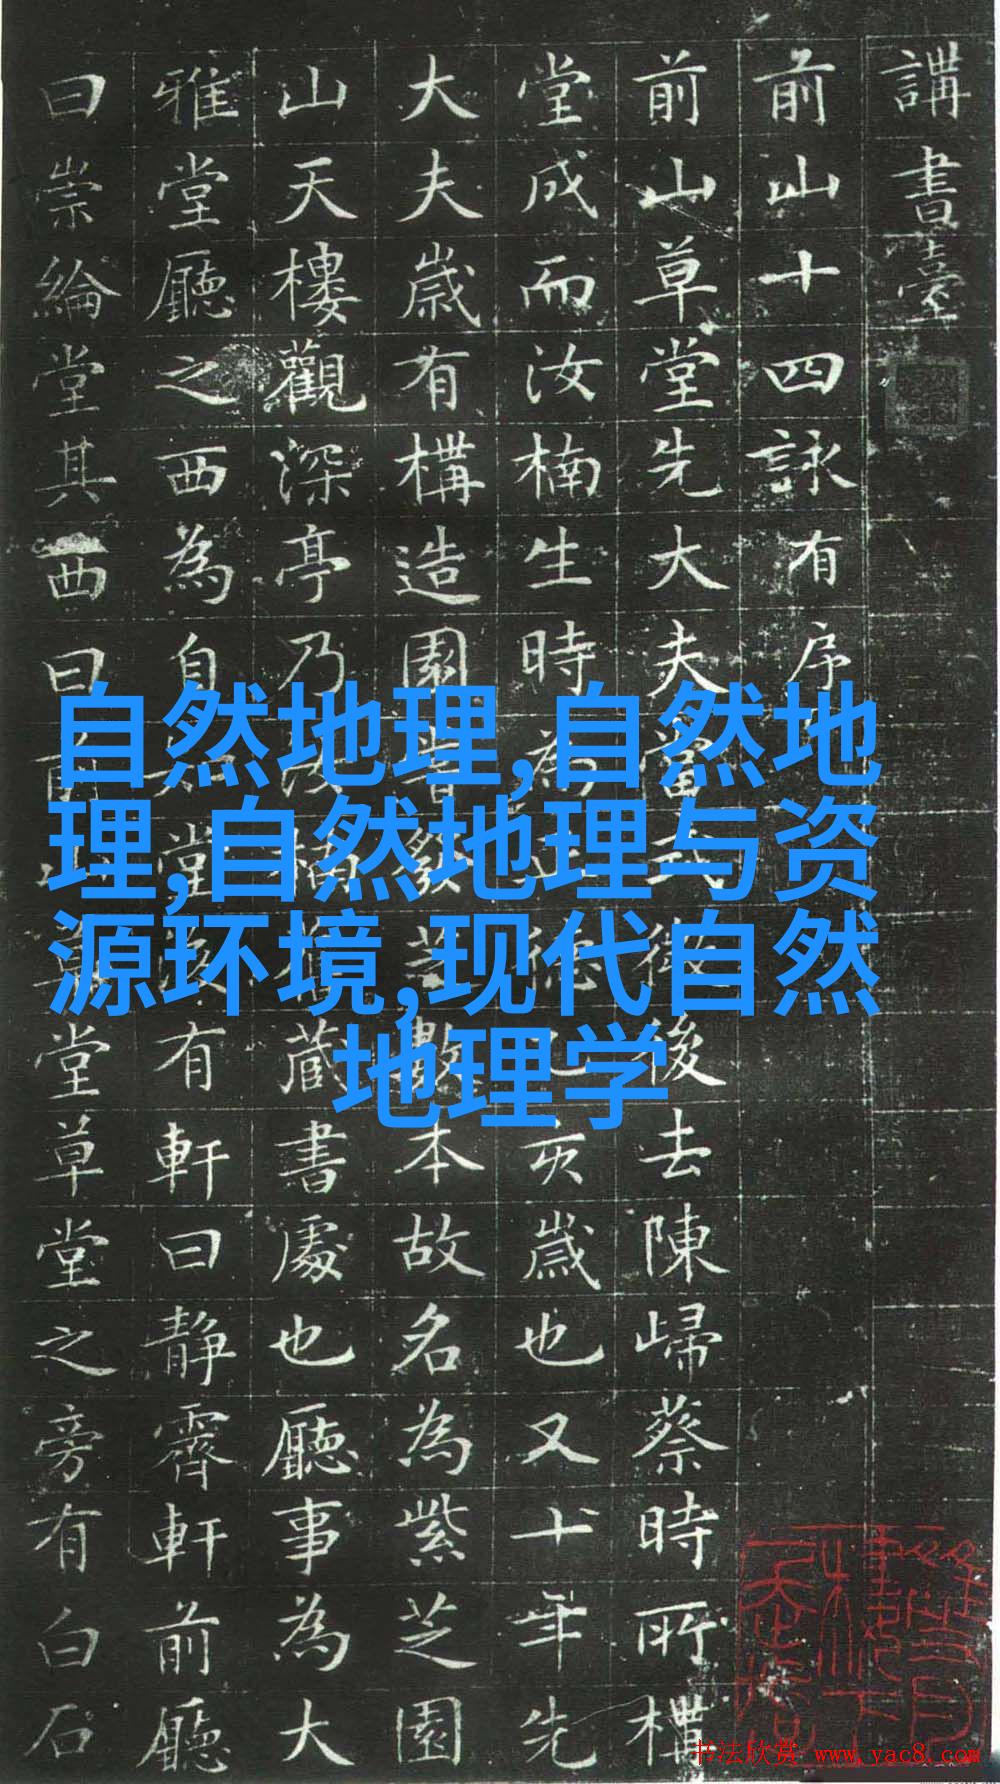 講書臺
前山十四詠有序
前山草堂先大夫當式微後去陳歸蔡時所構
堂成而汝楠生時為正德己亥歲也又十年先
大夫歲有構造園芝數本故名為紫芝園
山天樓觀深亭乃汝楠藏書處也廳事為大
雅堂廳之西為自知堂後有軒曰靜霽軒前廳
曰崇綸堂其西曰前山草堂草堂之旁有白石
自然地理,自然地
理,自然地理与资
源环境,现代自然
地理学
书法欣赏 www.yac8.com